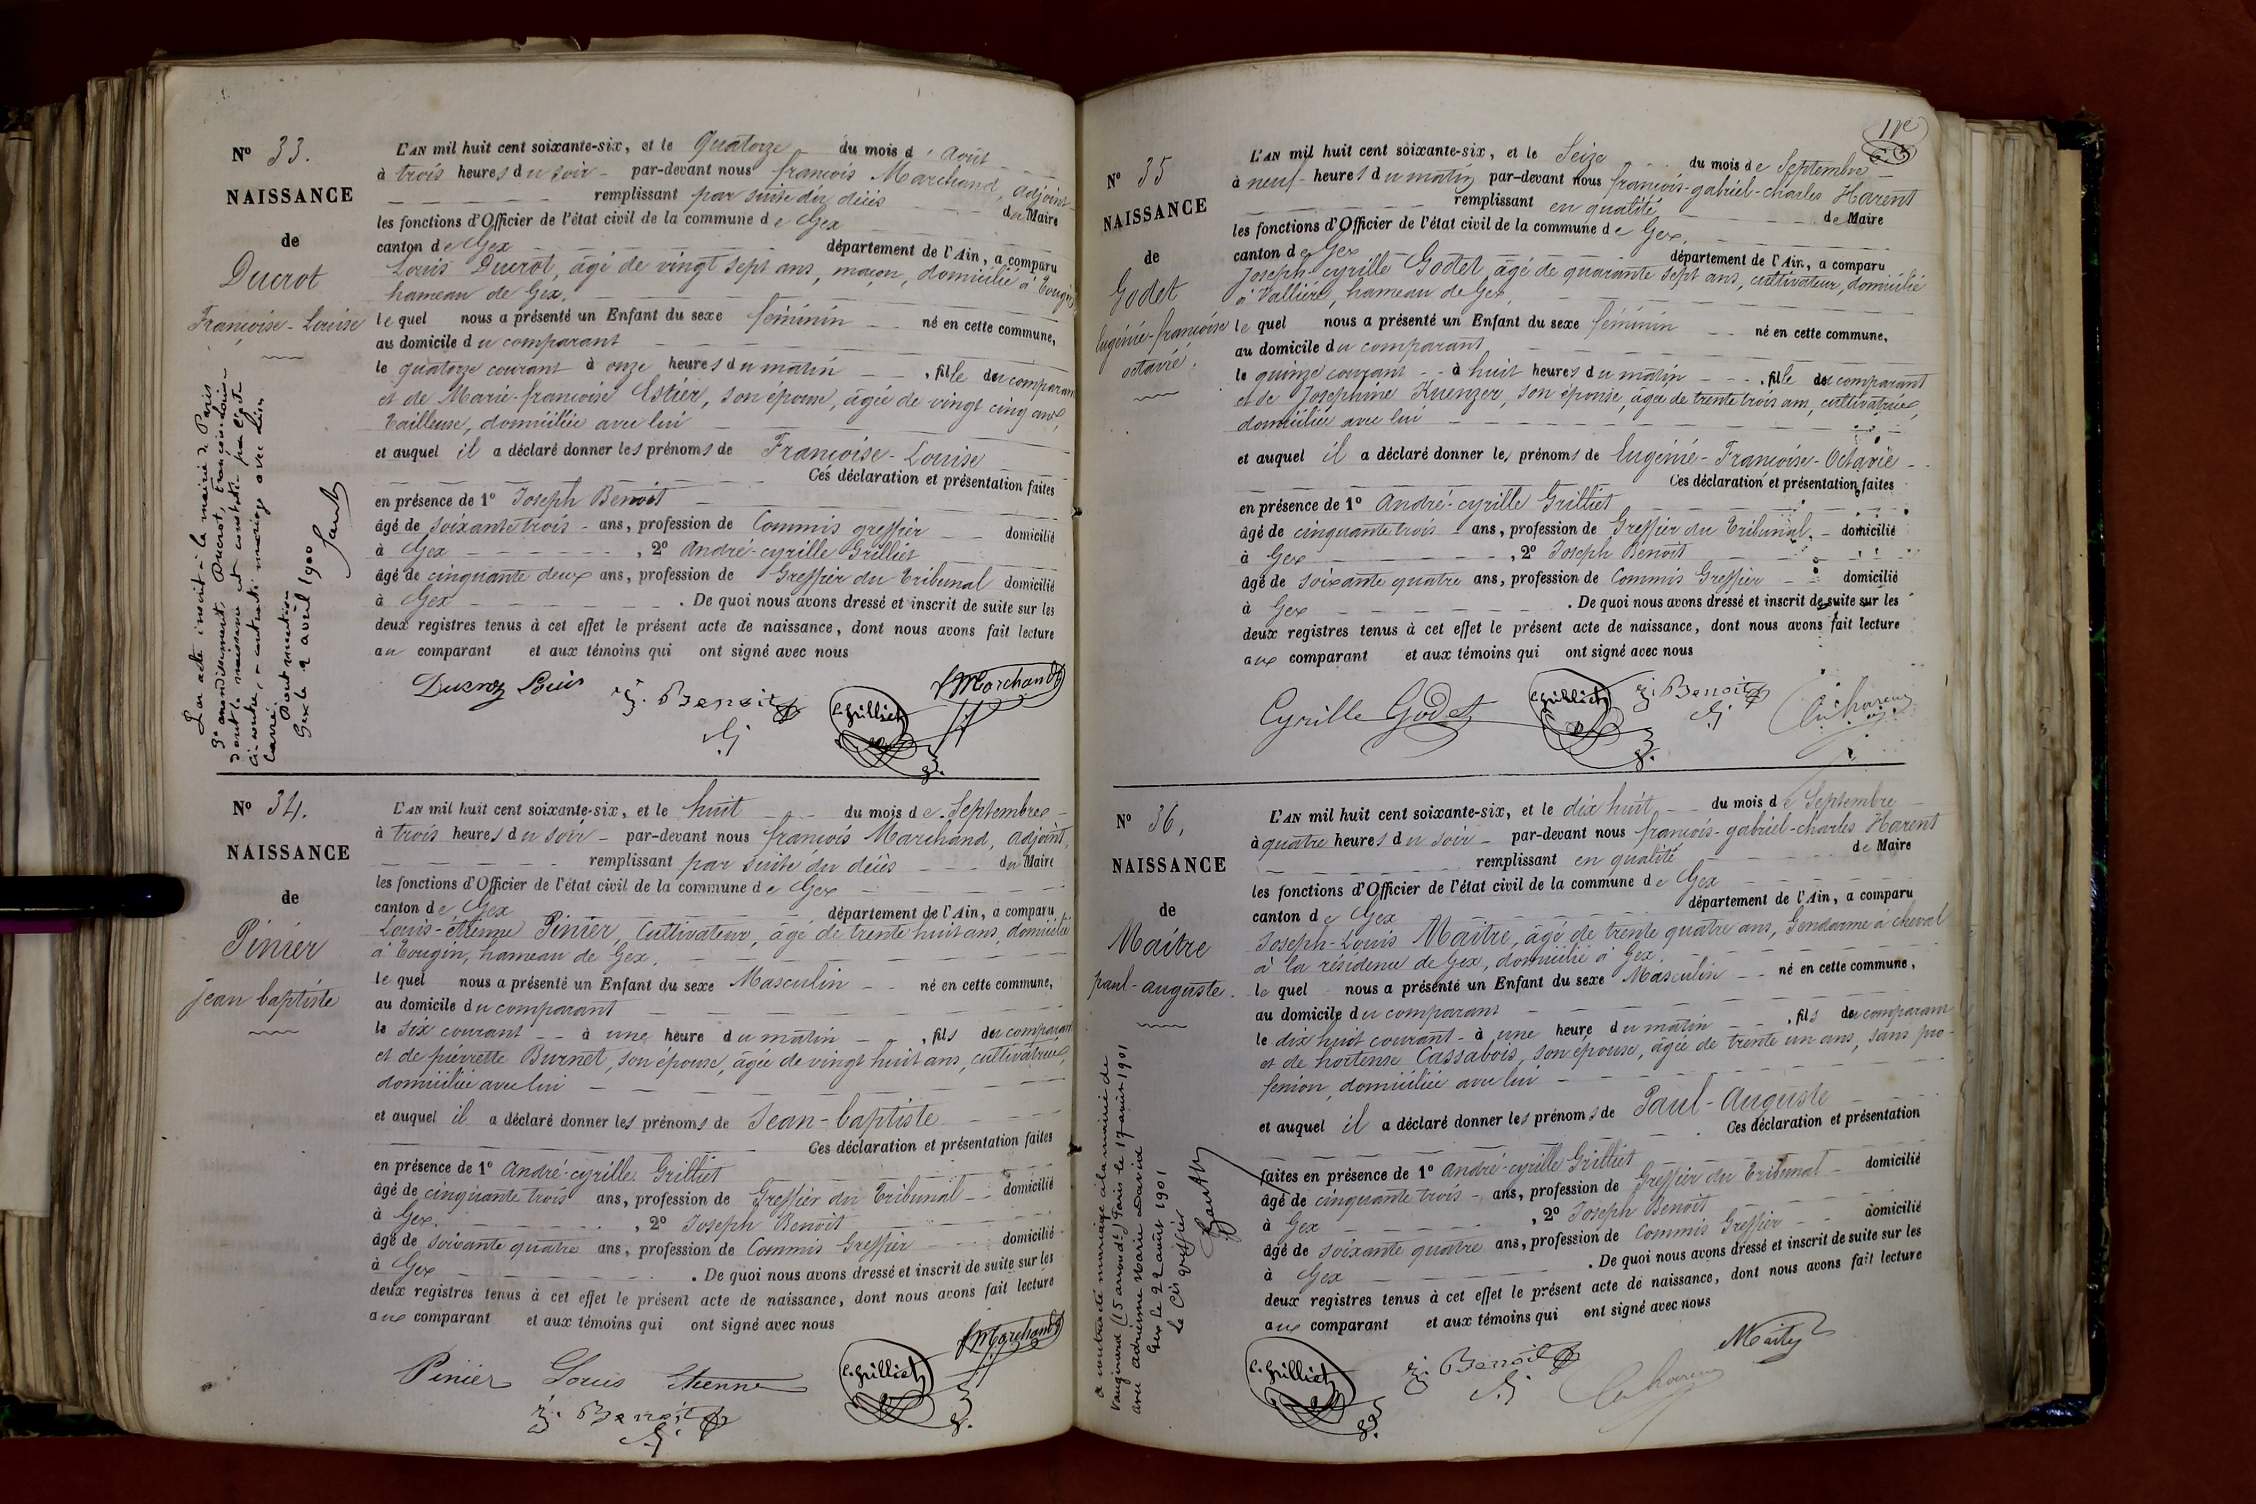 Nº 33.
NAISSANCE
de
Ducrot
Françoise-Louise
L'AN mil huit cent soixante-six, et le quatorze du mois d'Août
à trois heures du soir par-devant nous françois Marchand, adjoint
remplissant par suite du décès du Maire
les fonctions d'Officier de l'état civil de la commune de Gex
canton de Gex département de l'Ain, a comparu
Louis Ducrot, âgé de vingt sept ans, maçon, domicilié à Tougin,
hameau de Gex.
le quel nous a présenté un Enfant du sexe féminin né en cette commune,
au domicile du comparant
le quatorze courant à onze heures du matin, fille du comparant
et de Marie-françoise Estier, son épouse, âgée de vingt cinq ans,
tailleuse, domiciliée avec lui
et auquel il a déclaré donner les prénoms de Françoise-Louise
Ces déclaration et présentation faites
en présence de 1º Joseph Benoit
âgé de soixante trois ans, profession de Commis greffier domicilié
à Gex, 2º André-cyrille Grilliet
âgé de cinquante deux ans, profession de Greffier du Tribunal domicilié
à Gex. De quoi nous avons dressé et inscrit de suite sur les
deux registres tenus à cet effet le présent acte de naissance, dont nous avons fait lecture
au comparant et aux témoins qui ont signé avec nous
Ducroz Louis J. Benoit C. Grilliet f Marchand
Par acte inscrit à la mairie de Paris
9e arrondissement, Ducrot, françoise Louise
dont la naissance est constatée par l'acte
ci-contre, a contracté mariage avec
Pour mention
Gex le 2 avril 1900
Nº 34.
NAISSANCE
de
Pinier
jean baptiste
L'AN mil huit cent soixante-six, et le huit du mois de Septembre
à trois heures du soir par-devant nous françois Marchand, adjoint,
remplissant par suite du décès du Maire
les fonctions d'Officier de l'état civil de la commune de Gex
canton de Gex département de l'Ain, a comparu
Louis-étienne Pinier, Cultivateur, âgé de trente huit ans, domicilié
à Tougin, hameau de Gex.
le quel nous a présenté un Enfant du sexe Masculin né en cette commune,
au domicile du comparant
le six courant à une heure du matin, fils du comparant
et de pierrette Burnet, son épouse, âgée de vingt huit ans, cultivatrice,
domiciliée avec lui
et auquel il a déclaré donner les prénoms de Jean-baptiste
Ces déclaration et présentation faites
en présence de 1º André-cyrille Grilliet
âgé de cinquante trois ans, profession de Greffier du Tribunal domicilié
à Gex, 2º Joseph Benoit
âgé de soixante quatre ans, profession de Commis Greffier domicilié
à Gex. De quoi nous avons dressé et inscrit de suite sur les
deux registres tenus à cet effet le présent acte de naissance, dont nous avons fait lecture
aux comparant et aux témoins qui ont signé avec nous
Pinier Louis Etienne C. Grilliet f Marchand
J. Benoit
Nº 35
NAISSANCE
de
Godet
Eugénie-françoise
octavie.
L'AN mil huit cent soixante-six, et le Seize du mois de Septembre
à neuf heures du matin par-devant nous françois-gabriel-charles Harent
remplissant en qualité de Maire
les fonctions d'Officier de l'état civil de la commune de Gex,
canton de Gex département de l'Ain, a comparu
Joseph-cyrille Godet, âgé de quarante sept ans, cultivateur, domicilié
à Vallière, hameau de Gex.
le quel nous a présenté un Enfant du sexe féminin né en cette commune,
au domicile du comparant
le quinze courant à huit heures du matin, fille du comparant
et de Joséphine Kuenzer, son épouse, âgée de trente trois ans, cultivatrice,
domiciliée avec lui
et auquel il a déclaré donner les prénoms de Eugénie-Françoise-Octavie
Ces déclaration et présentation faites
en présence de 1º André-cyrille Grilliet
âgé de cinquante trois ans, profession de Greffier du Tribunal, domicilié
à Gex, 2º Joseph Benoit
âgé de soixante quatre ans, profession de Commis Greffier domicilié
à Gex. De quoi nous avons dressé et inscrit de suite sur les
deux registres tenus à cet effet le présent acte de naissance, dont nous avons fait lecture
aux comparant et aux témoins qui ont signé avec nous
Cyrille Godet C. Grilliet J. Benoit Ch harent
Nº 36,
NAISSANCE
de
Maître
paul-auguste.
L'AN mil huit cent soixante-six, et le dix huit du mois de Septembre
à quatre heures du soir par-devant nous françois-gabriel-charles Harent
remplissant en qualité de Maire
les fonctions d'Officier de l'état civil de la commune de Gex
canton de Gex département de l'Ain, a comparu
Joseph-Louis Maître, âgé de trente quatre ans, Gendarme à cheval
à la résidence de Gex, domicilié à Gex.
le quel nous a présenté un Enfant du sexe Masculin né en cette commune,
au domicile du comparant
le dix huit courant à une heure du matin, fils du comparant
et de hortense Cassabois, son épouse, âgée de trente un ans, sans pro-
fession, domiciliée avec lui
et auquel il a déclaré donner les prénoms de Paul-Auguste
Ces déclaration et présentation
faites en présence de 1º André-cyrille Grilliet
âgé de cinquante trois ans, profession de Greffier du Tribunal domicilié
à Gex, 2º Joseph Benoit
âgé de soixante quatre ans, profession de Commis Greffier domicilié
à Gex. De quoi nous avons dressé et inscrit de suite sur les
deux registres tenus à cet effet le présent acte de naissance, dont nous avons fait lecture
aux comparant et aux témoins qui ont signé avec nous
C. Grilliet J. Benoit Ch harent Maitre
a contracté mariage à la mairie de
Vaugirard (15 arrondt) Paris le 17 1901
avec Adrienne Marie
Gex le 22 août 1901
Le greffier